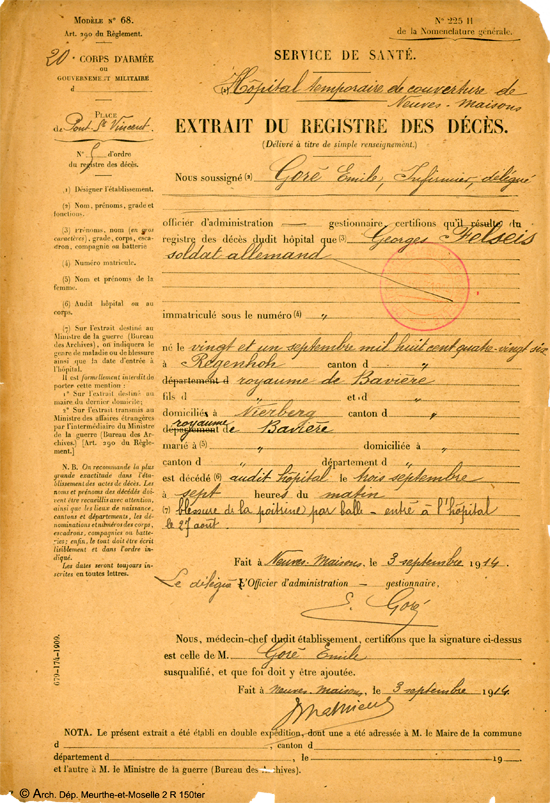 MODÈLE N° 68.
Art. 290 du Règlement.
20e CORPS D'ARMÉE
ou
GOUVERNEMENT MILITAIRE
d
PLACE
de Pont St Vincent
N° 5 d'ordre
du registre des décès.
(1) Désigner l'établissement.
(2) Nom, prénoms, grade et
fonctions.
(3) Prénoms, nom (en gros
caractères), grade, corps, esca-
dron, compagnie ou batterie
(4) Numéro matricule.
(5) Nom et prénoms de la
femme.
(6) Audit hôpital ou au
corps.
(7) Sur l'extrait destiné au
Ministre de la guerre (Bureau
des Archives), on indiquera le
genre de maladie ou de blessure
ainsi que la date d'entrée à
l'hôpital.
Il est formellement interdit de
porter cette mention :
1° Sur l'extrait destiné au
maire du dernier domicile;
2° Sur l'extrait transmis au
Ministre des affaires étrangères
par l'intermédiaire du Ministre
de la guerre (Bureau des Ar-
chives.) [Art. 290 du Règle-
ment.]
N. B. On recommande la plus
grande exactitude dans l'éta-
blissement des actes de décès. Les
noms et prénoms des décédés doi-
vent être recueillis avec attention,
ainsi que les lieux de naissance,
cantons et départements, les dé-
nominations et numéros des corps,
escadrons, compagnies ou batte-
ries; enfin, le tout doit être écrit
lisiblement et dans l'ordre in-
diqué.
Les dates seront toujours in-
scrites en toutes lettres.
679-174-1909.
N° 225 H
de la Nomenclature générale.
SERVICE DE SANTÉ.
(1) Hôpital temporaire de couverture de
Neuves-Maisons
EXTRAIT DU REGISTRE DES DÉCÈS.
(Délivré à titre de simple renseignement.)
Nous soussigné (2) Goré Emile, Infirmier, délégué
officier d'administration — gestionnaire, certifions qu'il résulte du
registre des décès dudit hôpital que (3) Georges Felseis
soldat allemand
immatriculé sous le numéro (4) "
né le vingt et un septembre mil huit cent quatre-vingt six
à Regenhoh canton d "
département d royaume de Bavière
fils d " et d "
domiciliés à Nierberg canton d "
département royaume de Bavière
marié à (5) " domiciliée à "
canton d " département d "
est décédé (6) audit hôpital le trois septembre
à sept heures du matin
(7) blessure de la poitrine par balle - entré à l'hôpital
le 27 août
Fait à Neuves-Maisons, le 3 septembre 1914
Le délégué L'Officier d'administration — gestionnaire,
E. Goré
Nous, médecin-chef dudit établissement, certifions que la signature ci-dessus
est celle de M. Goré Emile
susqualifié, et que foi doit y être ajoutée.
Fait à Neuves-Maisons, le 3 septembre 1914
Mathieu
NOTA. Le présent extrait a été établi en double expédition, dont une a été adressée à M. le Maire de la commune
d , canton d
département d , le 19
et l'autre à M. le Ministre de la guerre (Bureau des Archives).
© Arch. Dép. Meurthe-et-Moselle 2 R 150ter